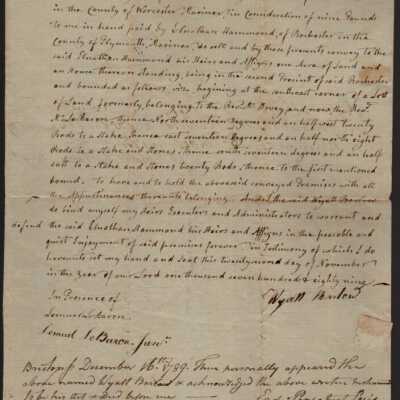 in the County of Worcester Mariner, in Consideration of nine Pounds
to me in hand paid by Elnathan Hammond, of Rochester in the
County of Plymouth, Mariner, do sell and by these presents convey to the
said Elnathan Hammond his Heirs and Assigns one Acre of Land and
an House thereon standing, being in the second Precinct of said Rochester
and bounded as follows, viz. begining at the southeast corner of a Lott
of Land formerly belonging to the Revd. Mr. Hovey and now the Revd.
Mr. LeBaron, thence North seventeen degrees and an half west twenty
Rods to a Stake, thence east seventeen degrees and an half north eight
Rods to a Stake and Stones, thence south seventeen degrees and an half
east to a Stake and Stones twenty Rods, thence to the first mentioned
bound. To have and to hold the abovesaid conveyed Premises with all
the Appurtenances thereunto belonging. And I the said Wyatt
do bind myself my Heirs Executors and Administrators to warrant and
defend the said Elnathan Hammond his Heirs and Assigns in the peaceable and
quiet Enjoyment of said premises forever. in Testimony of which I do
hereunto set my hand and Seal this twenty second day of November
in the Year of our Lord one thousand seven hundred & eighty nine.
In Presence of
Wyatt
Lemuel LeBaron
Lemuel LeBaron Junr.
Bristol Ss December 16th 1789. Then personally appeared the
above named Wyatt & acknowledged the above written instrument
to be his Act & Deed before me